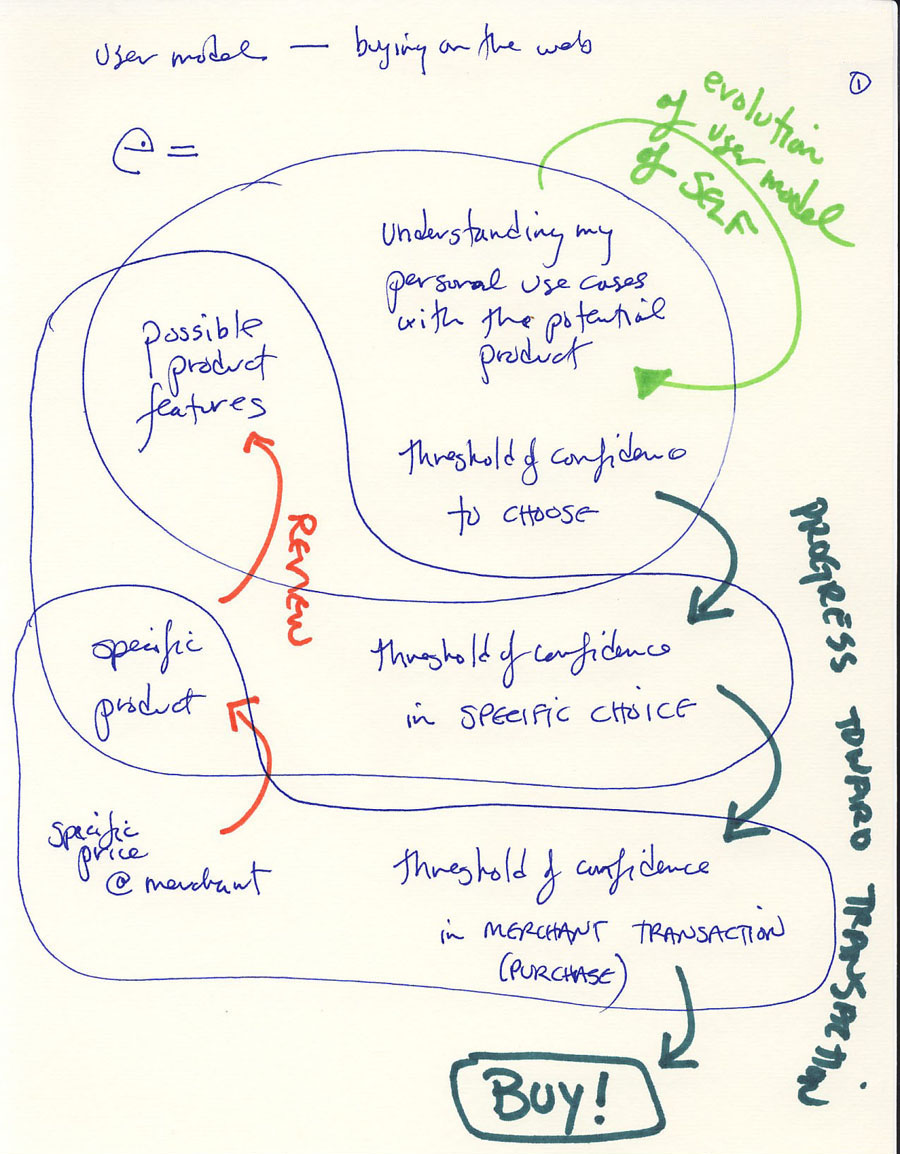 user model — buying on the web
①
evolution
of user model
of SELF
understanding my
personal use cases
with the potential
product
possible
product
features
threshold of confidence
to CHOOSE
REVIEW
PROGRESS TOWARD TRANSACTION
specific
product
threshold of confidence
in SPECIFIC CHOICE
specific
price
@ merchant
threshold of confidence
in MERCHANT TRANSACTION
(PURCHASE)
BUY!